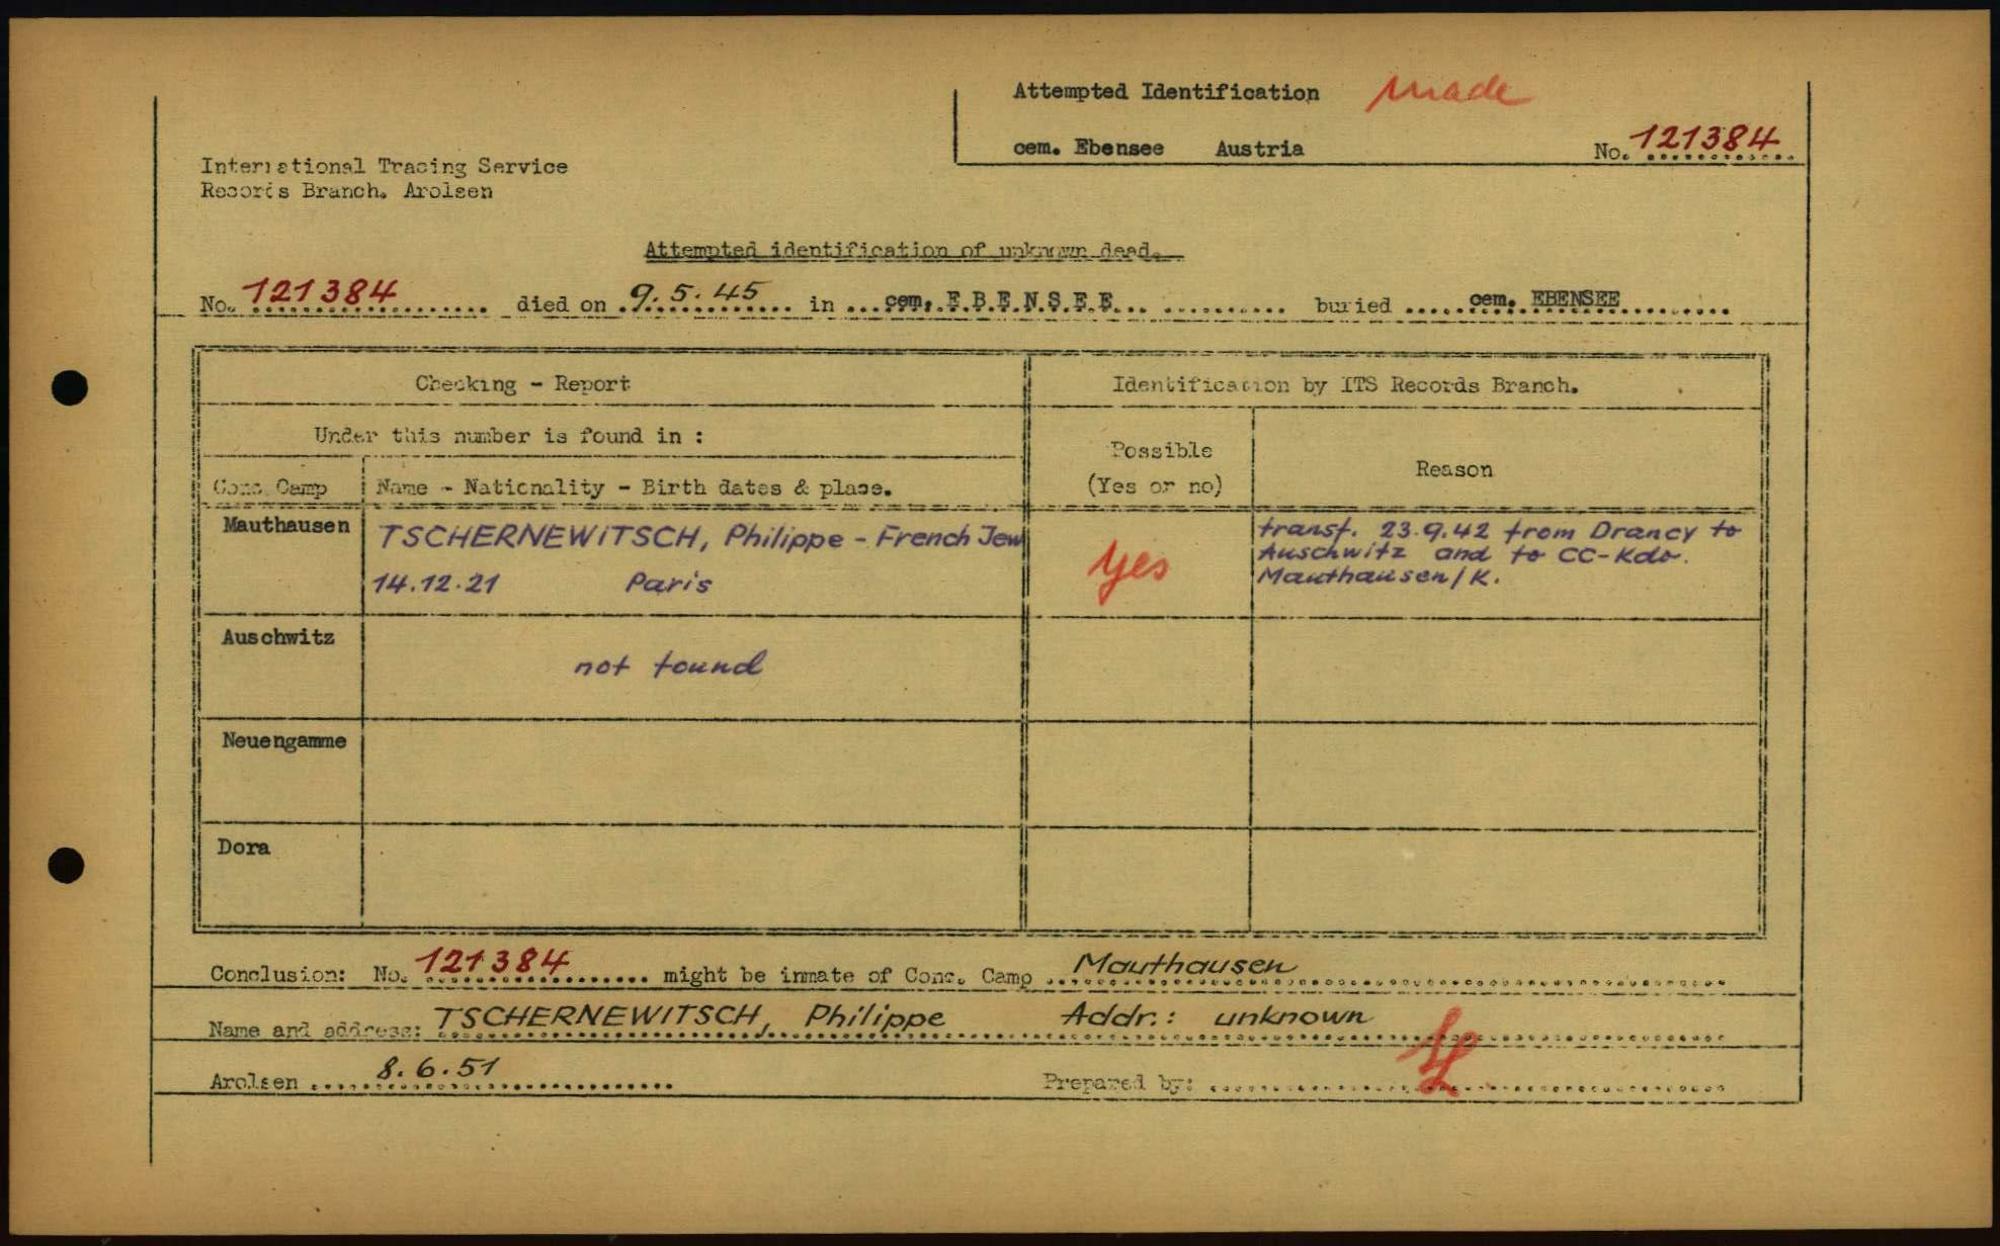 Attempted Identification made
cem. Ebensee Austria No. 121384
International Tracing Service
Records Branch. Arolsen
Attempted identification of unknown dead.
No. 121384 died on 9.5.45 in cem. EBENSEE buried cem. EBENSEE
Checking - Report Identification by ITS Records Branch.
Under this number is found in :
Possible
(Yes or no)
Reason
Conc. Camp Name - Nationality - Birth dates & place.
Mauthausen TSCHERNEWITSCH, Philippe - French Jew
14.12.21 Paris
yes
transf. 23.9.42 from Drancy to
Auschwitz and to CC-Kdo.
Mauthausen/K.
Auschwitz
not found
Neuengamme
Dora
Conclusion: No. 121384 might be inmate of Conc. Camp Mauthausen
Name and address: TSCHERNEWITSCH, Philippe Addr.: unknown
Arolsen 8.6.51 Prepared by: